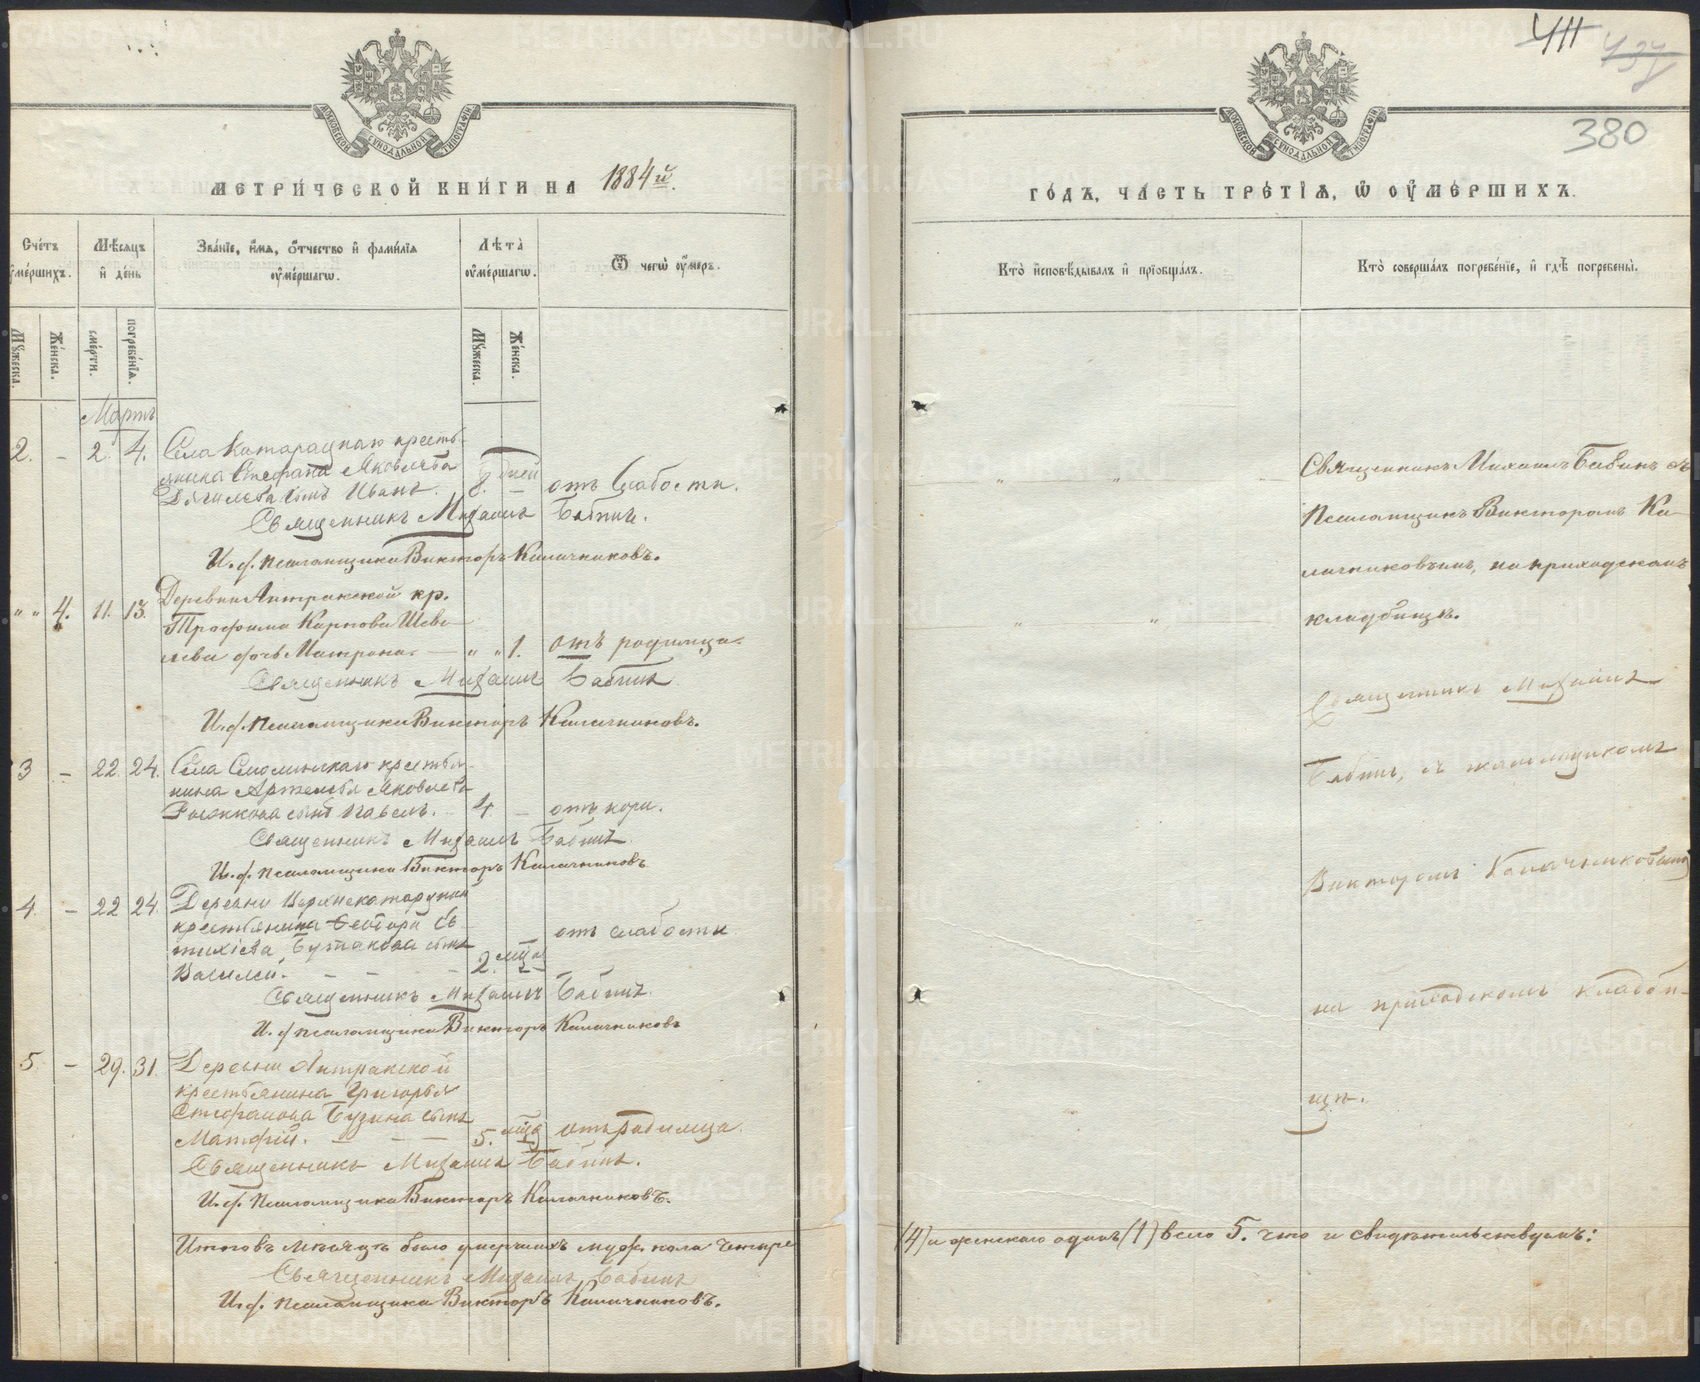 МЕТРИЧЕСКОЙ КНИГИ НА 1884й.
Счетъ умершихъ.
Мѣсяцъ и день
Званіе, имя, отчество и фамилія умершагѡ.
Лѣта умершагѡ.
Ѿ чегѡ умеръ.
Мужеска.
Женска.
смерти.
погребенія.
Мужеска.
Женска.
Мартъ
2. – 2. 4. Села Катарацкаго кресть-
янина Стефана Яковлева
Дягилева сынъ Иванъ. 8. дней – отъ слабости.
Священникъ Михаилъ Бабинъ.
И. ф. псаломщика Викторъ Калачниковъ.
" " 4. 11. 13. Деревни Антракской кр.
Трофима Карпова Шеве-
лева дочь Матрона. – " " 1. отъ родимца.
Священникъ Михаилъ Бабинъ
И. ф. псаломщика Викторъ Калачниковъ.
3 – 22. 24. Села Смолинскаго кресть-
янина Артемья Яковлева
сынъ Павелъ. 4. – отъ кори.
Священникъ Михаилъ Бабинъ
И. ф. псаломщика Викторъ Калачниковъ
4. – 22 24. Деревни
крестьянина Ев-
тихіева Бутакова сынъ
Василій. – – – 2. мца – отъ слабости
Священникъ Михаилъ Бабинъ.
И. ф псаломщика Викторъ Калачниковъ
5. – 29. 31. Деревни Антракской
крестьянина Григорья
Стефанова Бузина сынъ
Матфій. – – – 5. мца отъ родимца.
Священникъ Михаилъ Бабинъ.
И. ф. псаломщика Викторъ Калачниковъ.
Итого въ мѣсяцѣ было умершихъ муж. пола четыре
Священникъ Михаилъ Бабинъ
И. ф. псаломщика Викторъ Калачниковъ.
380
ГОДЪ, ЧАСТЬ ТРЕТІЯ, Ѡ УМЕРШИХЪ.
Кто исповѣдывалъ и пріобщалъ.
Кто совершалъ погребеніе, и гдѣ погребены.
Священникъ Михаилъ Бабинъ съ
Псаломщикъ Викторомъ Ка-
лачниковымъ, на приходскомъ
кладбищѣ.
Священникъ Михаилъ
Бабинъ, съ псаломщикомъ
Викторомъ Калачниковымъ
на приходскомъ кладби-
щѣ.
(4) и женскаго одинъ (1) всего 5. что и свидѣтельствуемъ:
METRIKI.GASO-URAL.RU